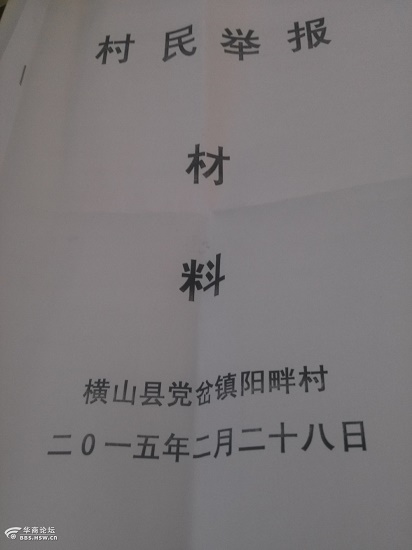 村民举报
材
料
横山县党岔镇阳畔村
二0一五年二月二十八日
华商论坛
BBS.HSW.CN